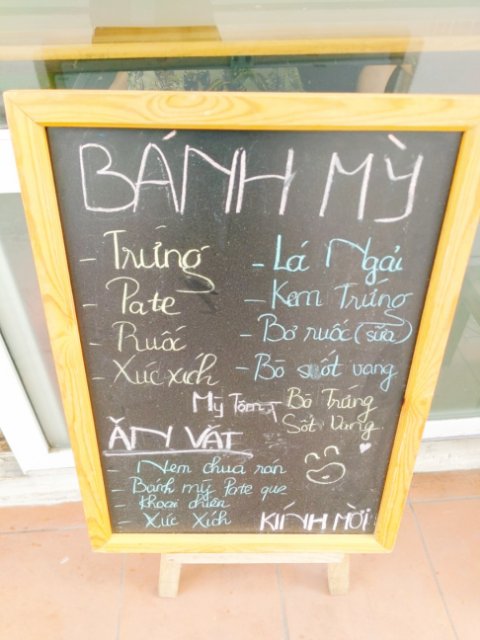 BÁNH MỲ
- Trứng
- Pate
- Ruốc
- Xúc xích
- Lá Ngải
- Kem Trứng
- Bơ ruốc (sữa)
- Bò sốt vang
Mỳ Tôm
Bò Trứng
Sốt Vang
ĂN VẶT
- Nem chua rán
- Bánh mỳ Pate que
- Khoai chiên
- Xúc Xích
KÍNH MỜI